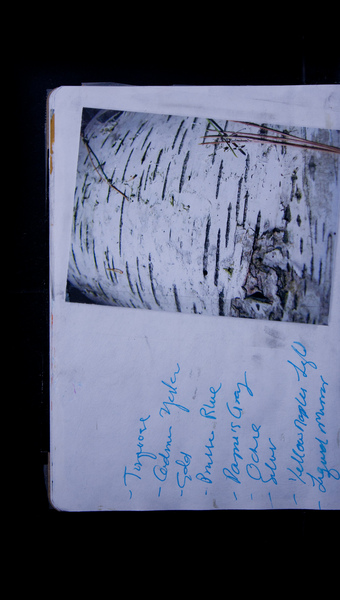 - Turquoise
- Cadmium Yellow
- Gold
- Prussian Blue
- Payne's Gray
- Ochre
- Silver
- Yellow Naples
- Liquid Mirror